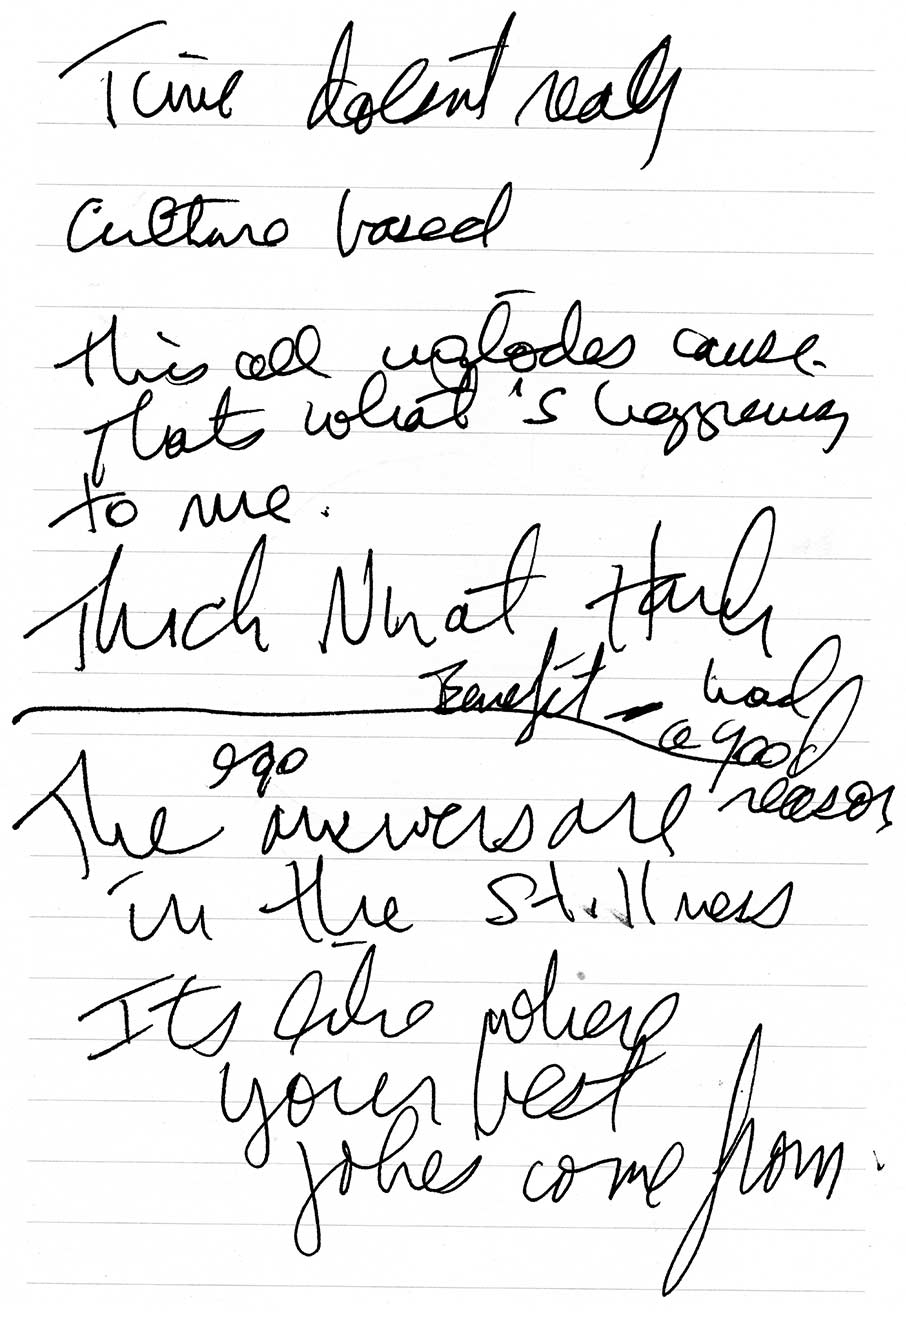 Time doesn't really
Culture based
this all explodes cause
that's what's happening
to me.
Thich Nhat Hanh
Benefit - had
a good
reason
ego
The answers are
in the stillness
Its like where
your best
jokes come from.